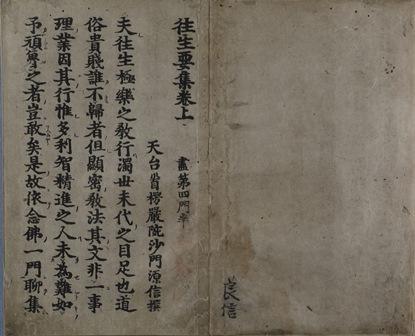 往生要集卷上 盡第四門半
天台首楞嚴院沙門源信撰
夫往生極樂之教行濁世末代之目足也道
俗貴賤誰不歸者但顯密教法其文非一事
理業因其行惟多利智精進之人未為難如
予頑魯之者豈敢矣是故依念佛一門聊集
信